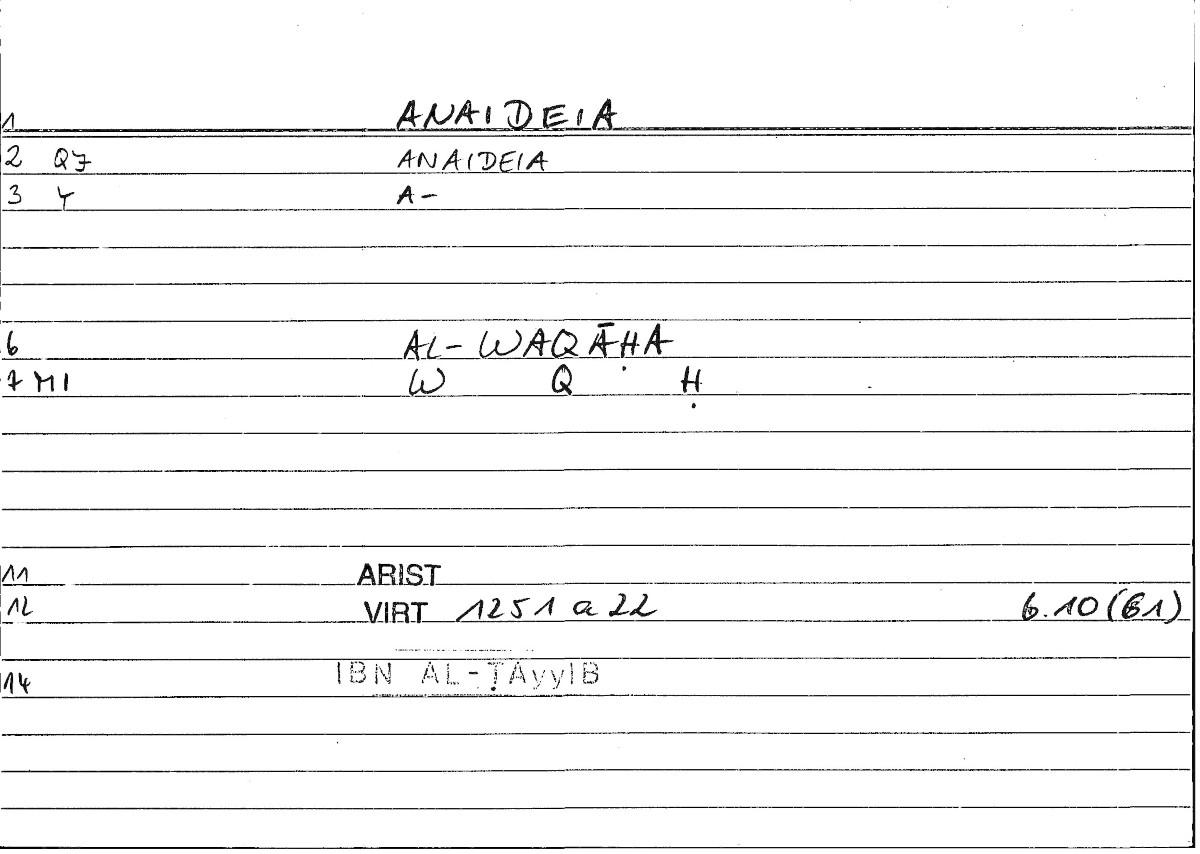 1 ANAIDEIA
2 Q7 ANAIDEIA
3 Y A-
6 AL-WAQĀḤA
7 M1 W Q Ḥ
11 ARIST
12 VIRT 1251 a 22 6.10(61)
14 IBN AL-ṬAyyIB